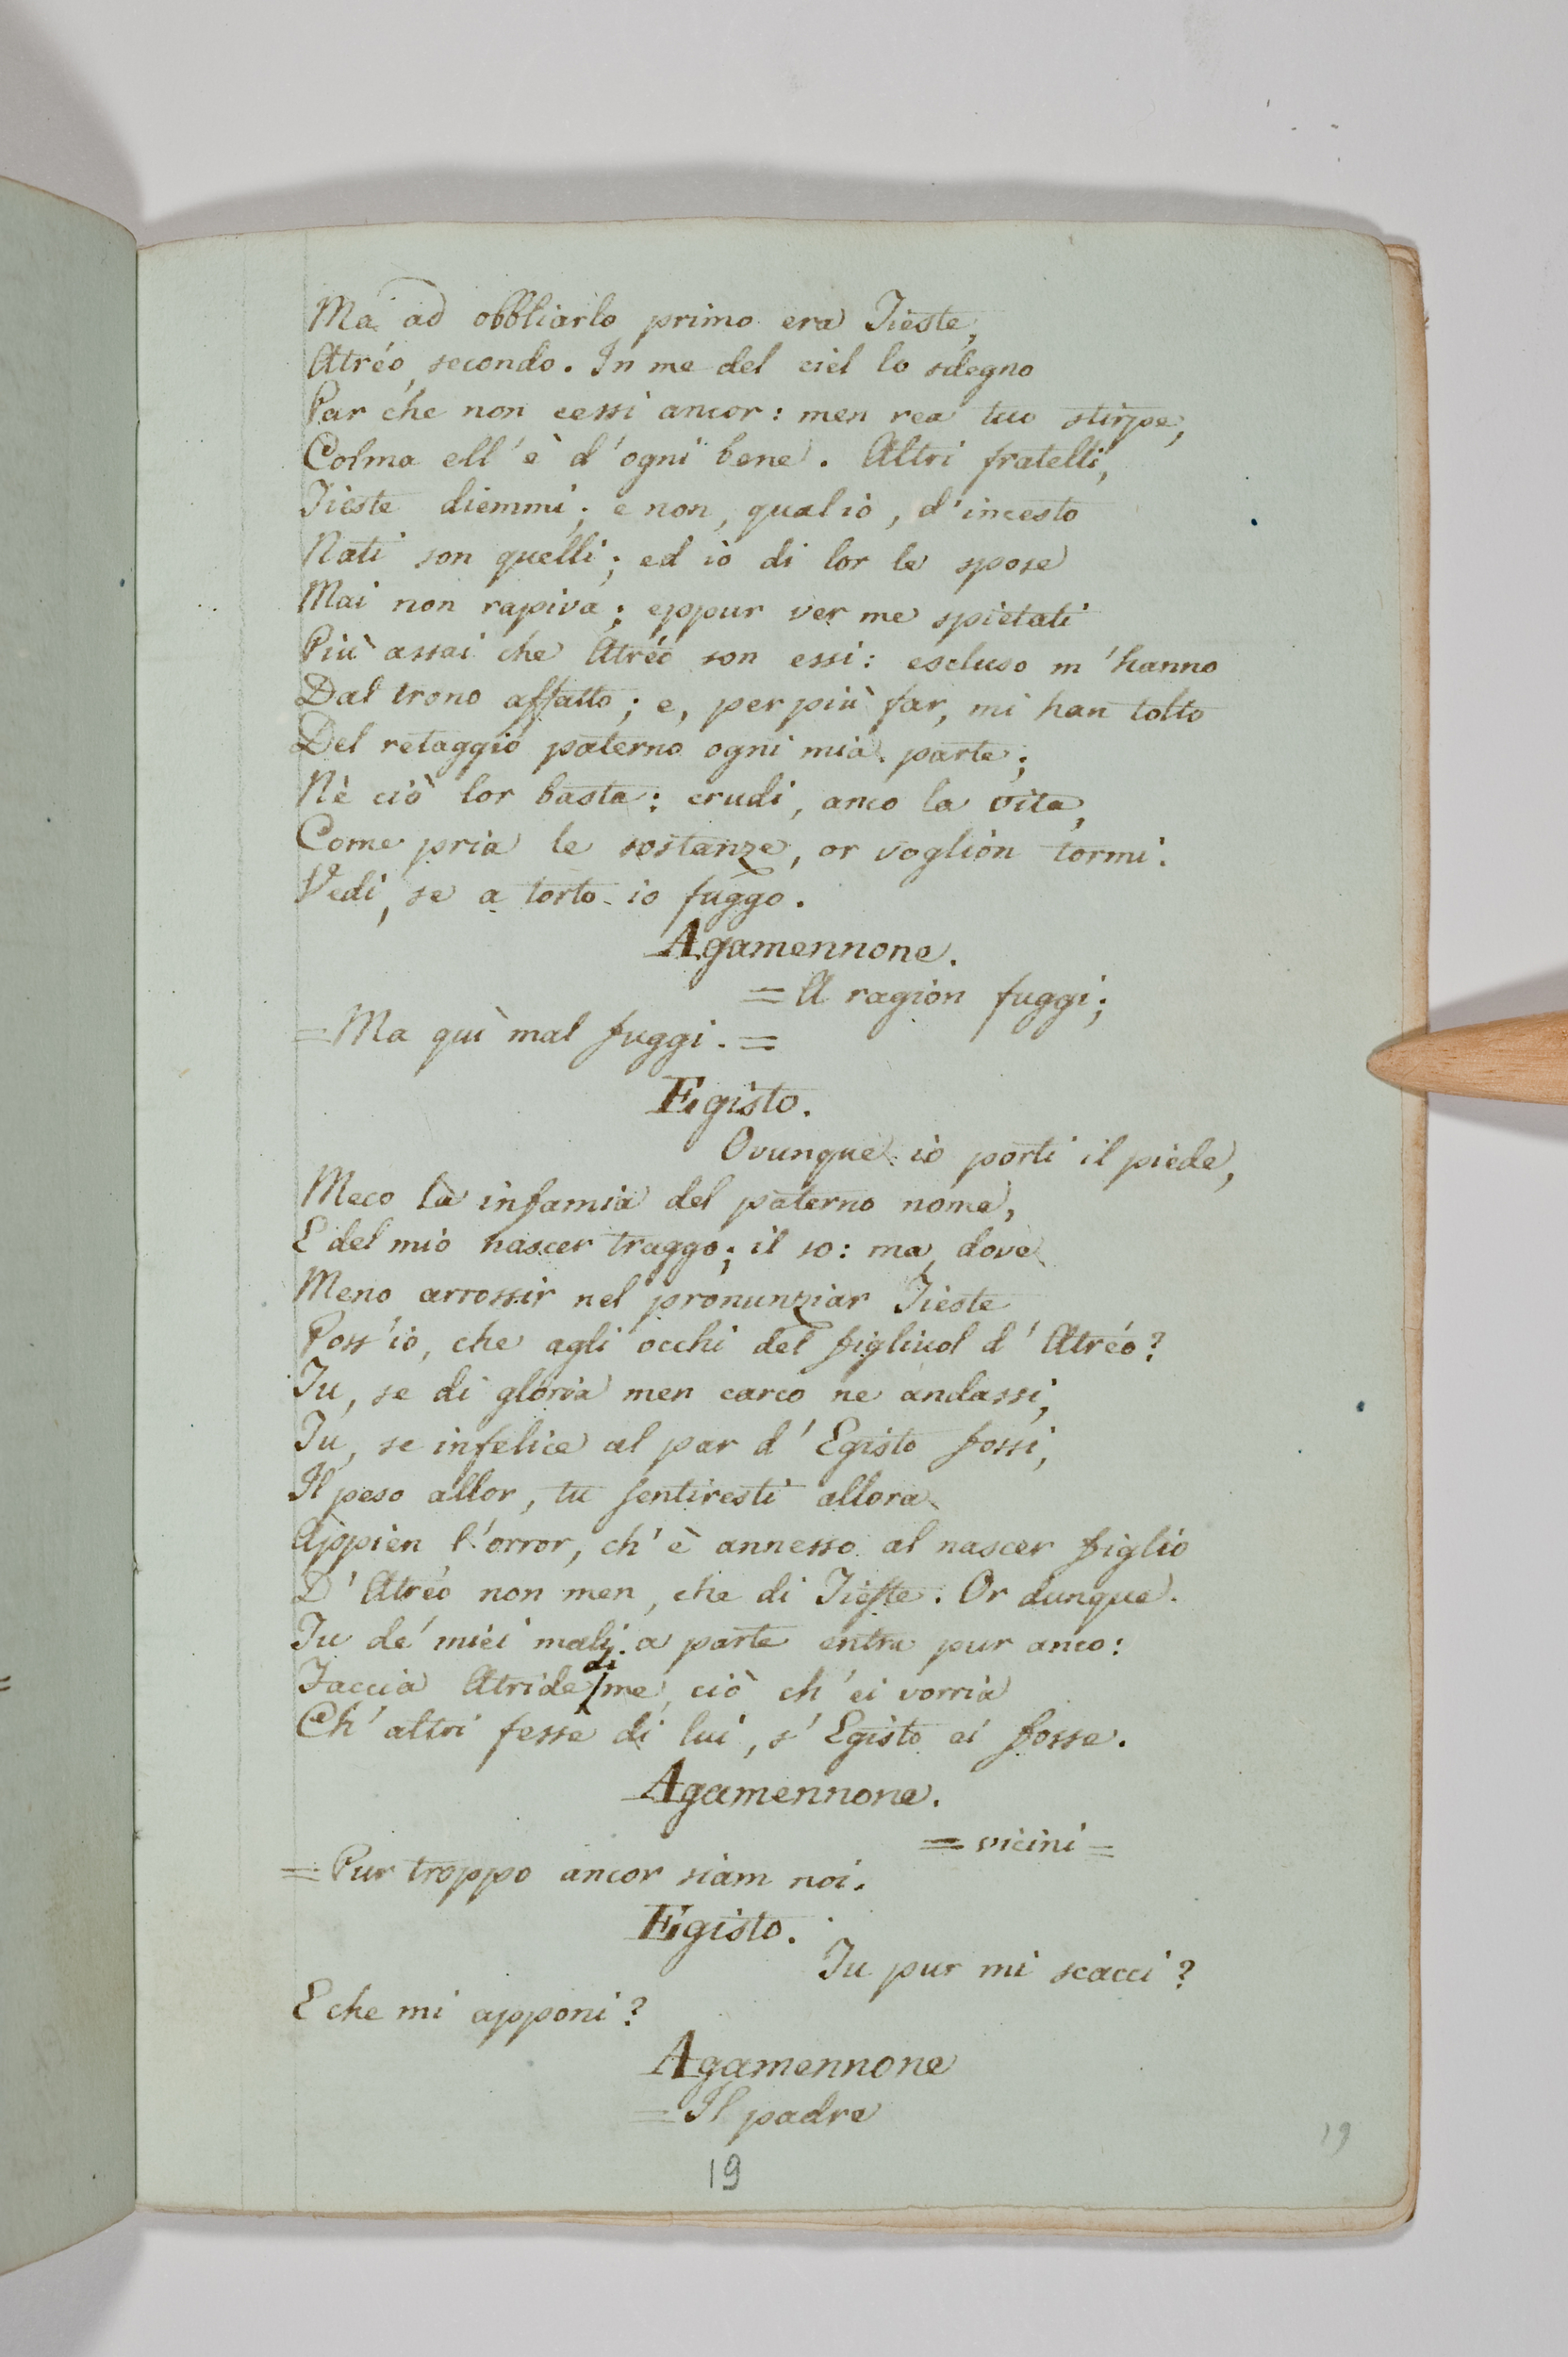 Ma ad obbliarlo primo era Tieste,
Atréo, secondo. In me del ciel lo sdegno
Par che non cessi ancor: men rea tuo stirpe,
Colma ell'è d'ogni bene. Altri fratelli,
Tieste diemmi; e non, qual io, d'incesto
Nati son quelli; ed io di lor le spose
Mai non rapiva; eppur ver me spietati
Più assai che Atréo son essi: escluso m'hanno
Dal trono affatto; e, per più far, mi han tolto
Del retaggio paterno ogni mia parte;
Nè ciò lor basta: crudi, anco la vita,
Come pria le sostanze, or voglion tormi.
Vedi, se a torto io fuggo.
Agamennone.
= A ragion fuggi;
= Ma quì mal fuggi. =
Egisto.
Ovunque io porti il piede,
Meco la infamia del paterno nome,
E del mio nascer traggo; il so: ma, dove
Meno arrossir nel pronunziar Tieste
Poss'io, che agli occhi del figliuol d'Atréo?
Tu, se di gloria men carco ne andassi,
Tu, se infelice al par d'Egisto fossi,
Il peso allor, tu sentiresti allora
Appien l'orror, ch'è annesso al nascer figlio
D'Atréo non men, che di Tieste. Or dunque
Tu de' miei mali a parte entra pur anco:
Faccia Atride di me, ciò ch'ei vorria
Ch'altri fesse di lui, s'Egisto ei fosse.
Agamennone.
= vicini =
= Pur troppo ancor siam noi.
Egisto.
Tu pur mi scacci?
E che mi apponi?
Agamennone
= Il padre
19
19